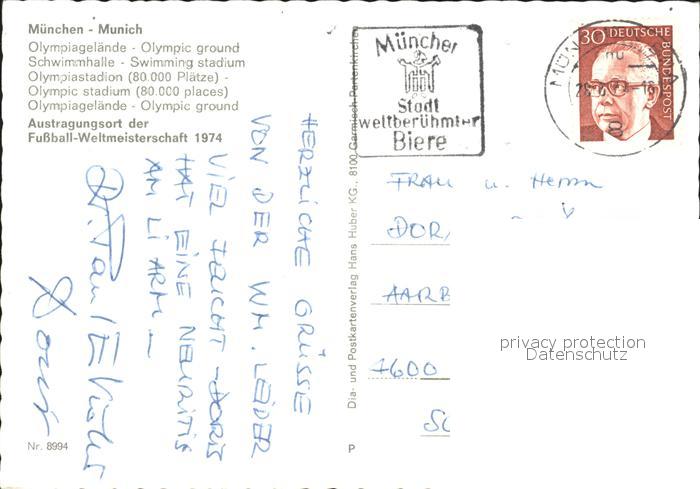 München - Munich
Olympiagelände - Olympic ground
Schwimmhalle - Swimming stadium
Olympiastadion (80.000 Plätze) -
Olympic stadium (80.000 places)
Olympiagelände - Olympic ground
Austragungsort der
Fußball-Weltmeisterschaft 1974
HERZLICHE GRÜSSE
VON DER WM. LEIDER
VIEL FEUCHT - DORIS
HAT EINE NEURITIS
AM LI ARM -
Nr. 8994
P
Dia- und Postkartenverlag Hans Huber KG., 8100 Garmisch-Partenkirchen
München
Stadt
weltberühmter
Biere
8
30 DEUTSCHE
BUNDESPOST
FRAU u. Herrn
DOR
AARB
privacy protection
Datenschutz
4600